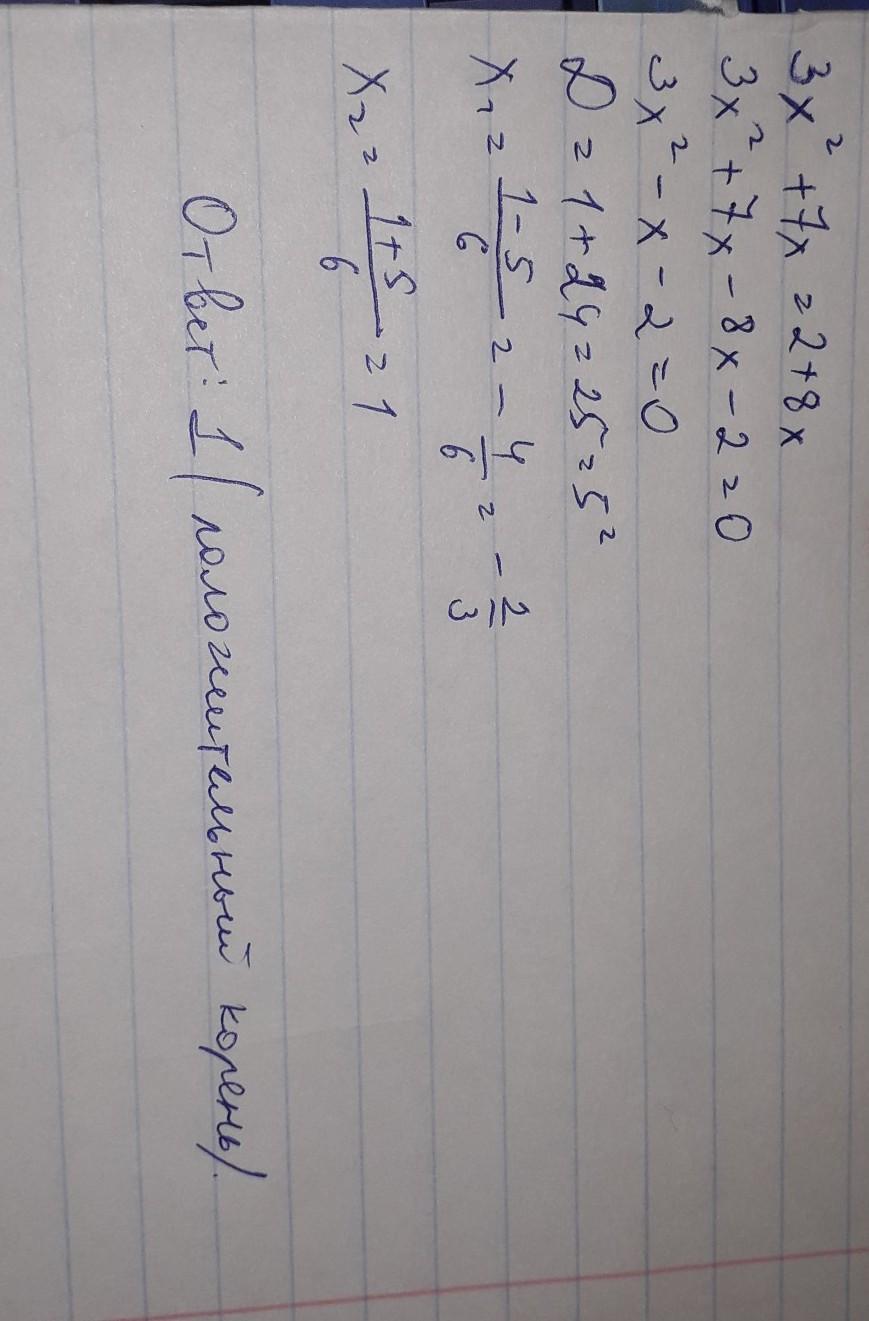 3x² + 7x = 2 + 8x
3x² + 7x - 8x - 2 = 0
3x² - x - 2 = 0
D = 1 + 24 = 25 = 5²
x₁ = (1-5)/6 = -4/6 = -2/3
x₂ = (1+5)/6 = 1
Ответ: 1 (положительный корень).